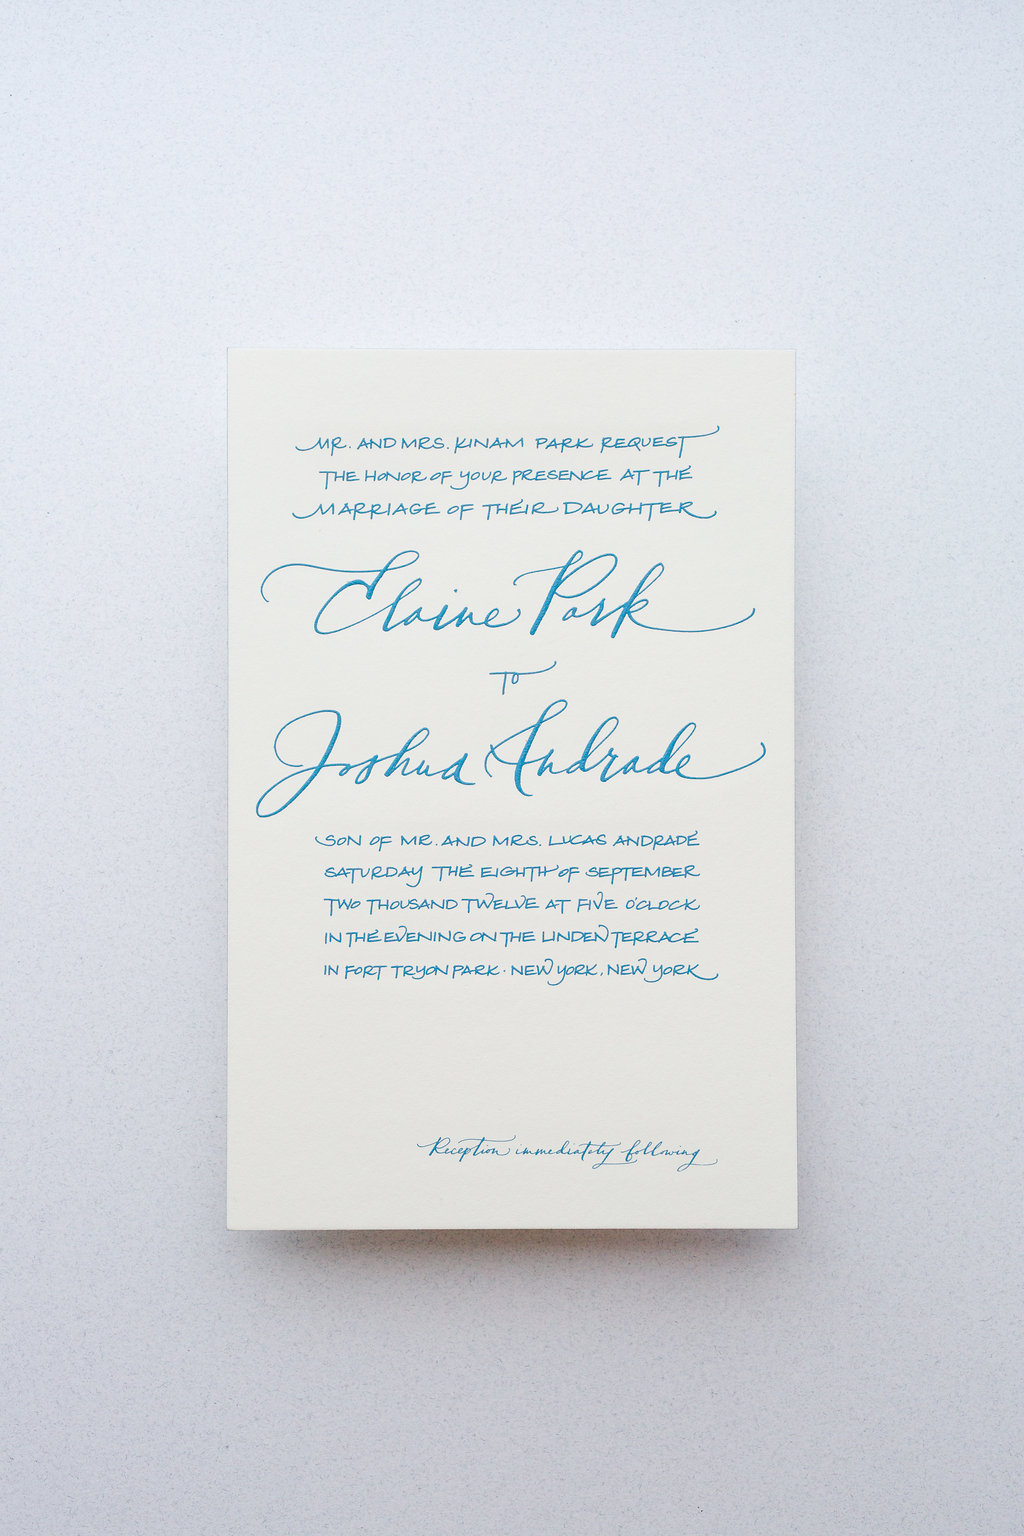 MR. AND MRS. KINAM PARK REQUEST
THE HONOR OF YOUR PRESENCE AT THE
MARRIAGE OF THEIR DAUGHTER
Elaine Park
TO
Joshua Andrade
SON OF MR. AND MRS. LUCAS ANDRADE
SATURDAY THE EIGHTH OF SEPTEMBER
TWO THOUSAND TWELVE AT FIVE O'CLOCK
IN THE EVENING ON THE LINDEN TERRACE
IN FORT TRYON PARK · NEW YORK, NEW YORK
Reception immediately following